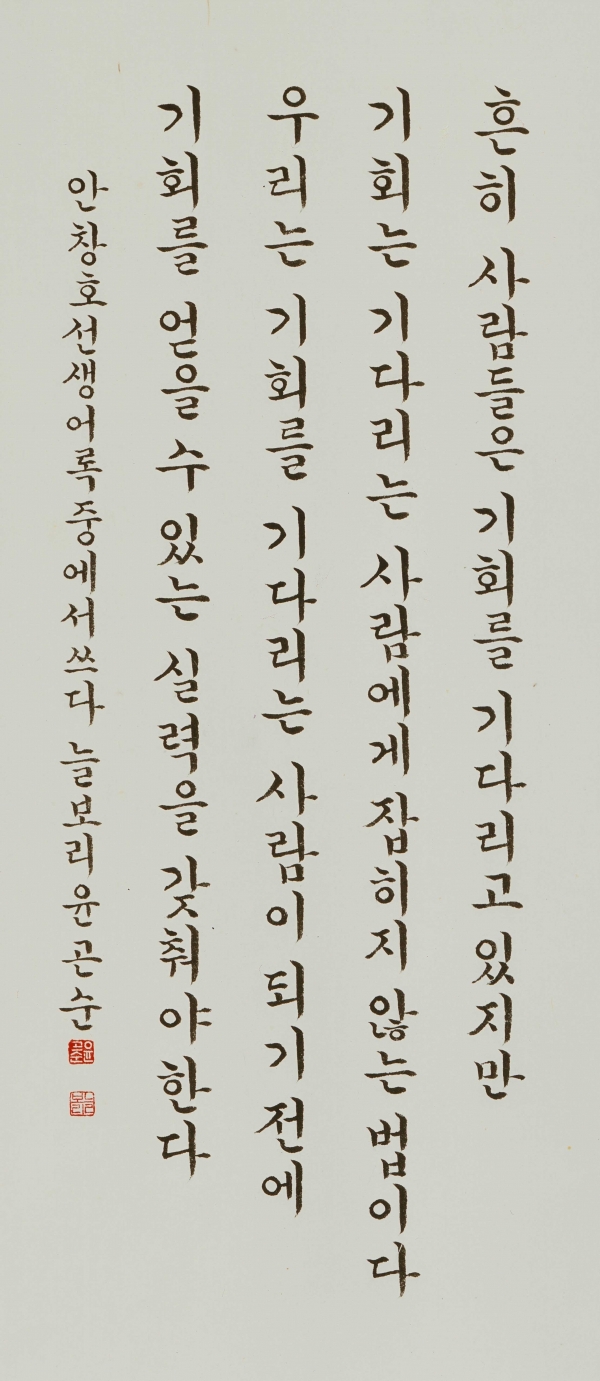 흔히 사람들은 기회를 기다리고 있지만
기회는 기다리는 사람에게 잡히지 않는 법이다
우리는 기회를 기다리는 사람이 되기 전에
기회를 얻을 수 있는 실력을 갖춰야 한다
안창호선생어록중에서쓰다 늘보리윤곤순